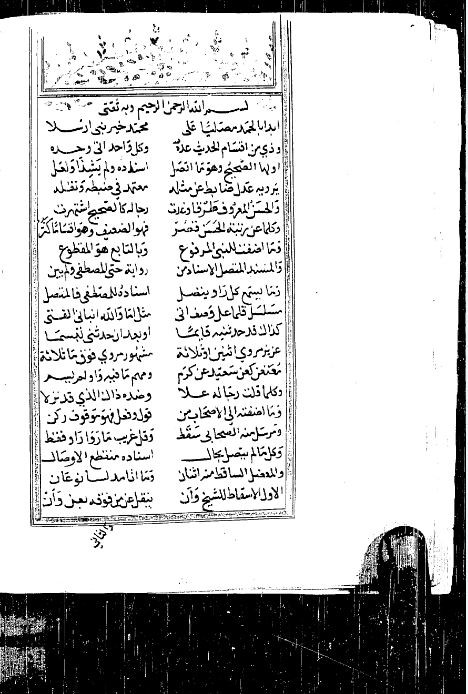 بسم الله الرحمن الرحيم وبه ثقتى
ابدا بالحمد مصليا على محمد خير نبى ارسلا
وذى من اقسام الحديث عده وكل واحد اتى وحده
اولها الصحيح وهو ما اتصل اسناده ولم يشذ او يعل
يرويه عدل ضابط عن مثله معتمد فى ضبطه ونقله
والحسن المعروف طرقا وغدت رجاله كالصحيح اشتهرت
وكلما عن رتبة الحسن قصر فهو الضعيف وهو اقساما كثر
وما اضيف للنبى المرفوع وما بالتابع هو المقطوع
والمسند المتصل الاسناد من روايه حتى المصطفى ولم يبن
وما بسمع كل راو يتصل اسناده للمصطفى فالمتصل
مسلسل قل ما على وصف اتى مثل اما والله انبانى الفتى
كذاك قد حدثنيه قائما او بعد ان حدثنى تبسما
عزيز مروى اثنين او ثلاثة مشهور مروى فوق ما ثلاثة
معنعن كعن سعيد عن كرم ومبهم ما فيه راو لم يسم
وكلما قلت رجاله علا وضده ذاك الذى قد نزلا
وما اضفته الى الاصحاب من قول وفعل فهو موقوف زكن
ومرسل منه الصحابى سقط وقل غريب ما روى راو فقط
وكل ما لم يتصل بحال اسناده منقطع الاوصال
والمعضل الساقط منه اثنان وما اتى مدلسا نوعان
الاول الاسقاط للشيخ وان ينقل عن من فوقه بعن وان
والثانى